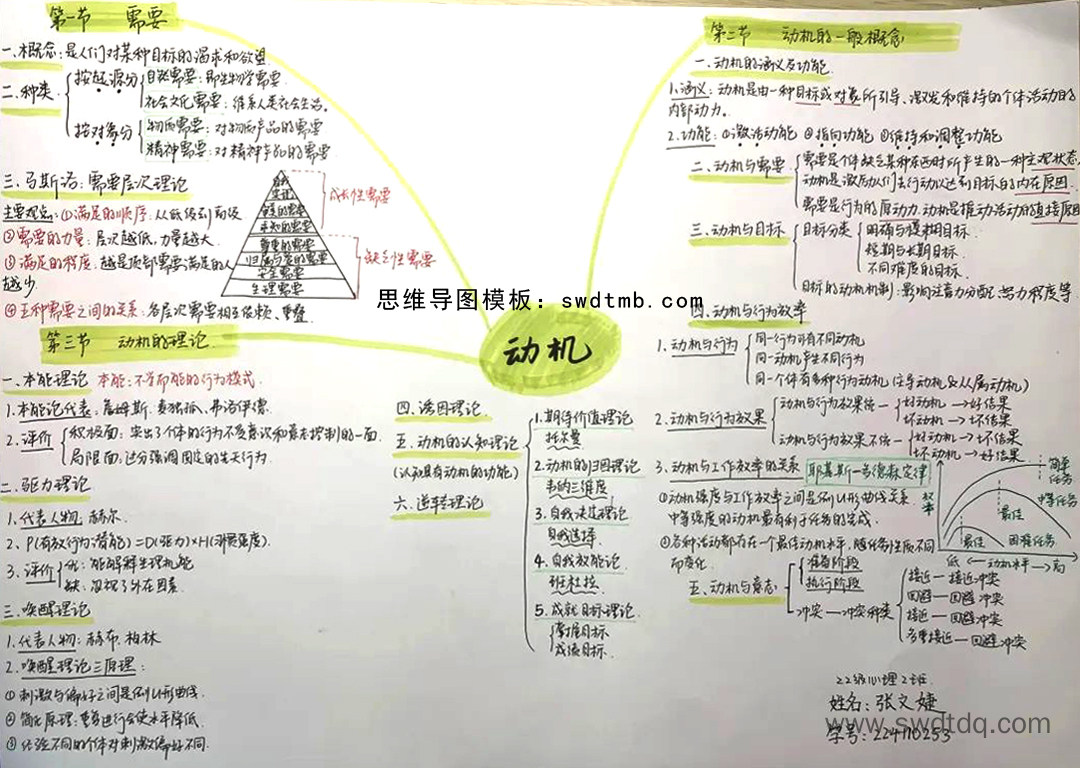 第一节 需要
一、概念：是人们对某种目标的渴求和欲望.
二、种类
按起源分
自然需要：即生物学需要.
社会文化需要：维系人类社会生活。
按对象分
物质需要：对物质产品的需要
精神需要：对精神产品的需要
三、马斯洛：需要层次理论
主要观点：①满足的顺序：从低级到高级
②需要的力量：层次越低，力量越大.
③满足的程度：越是顶部需要满足的人
越少.
④五种需要之间的关系：各层次需要相互依赖、重叠.
自我
实现
审美的需要
求知的需要
尊重的需要
归属与爱的需要
安全需要
生理需要
成长性需要
缺乏性需要
思维导图模板：swdtmb.com
动机
第二节 动机的一般概念
一、动机的涵义及功能.
1.涵义：动机是由一种目标或对象所引导、激发和维持的个体活动的
内部动力.
2.功能：①激活功能 ②指向功能 ③维持和调整功能
二、动机与需要
需要是个体缺乏某种东西时所产生的一种主观状态,
动机是激励人们去行动以达到目标的内在原因.
需要是行为的原动力.动机是推动活动的直接原因
三、动机与目标
目标分类
明确与模糊目标.
短期与长期目标.
不同难度的目标.
目标的动机机制：影响注意力分配、努力程度等
四、动机与行为效率
1.动机与行为
同一行为可有不同动机
同一动机产生不同行为
同一个体有多种行为动机(主导动机&从属动机)
2.动机与行为效果
动机与行为效果统一
好动机→好结果
坏动机→坏结果
动机与行为效果不统一
好动机→坏结果
坏动机→好结果
3.动机与工作效率的关系 耶基斯—多德森定律
①动机强度与工作效率之间是倒U形曲线关系.
中等强度的动机最有利于任务的完成.
②各种活动都存在一个最佳动机水平,随任务性质不同
而变化.
效率
简单
任务
中等任务
最佳
最佳
困难任务
低←动机水平→高
五、动机与意志
准备阶段
执行阶段
冲突—冲突种类
接近—接近冲突
回避—回避冲突
接近—回避冲突
多重接近—回避冲突
第三节 动机的理论
一、本能理论 本能：不学而能的行为模式.
1.本能论代表：詹姆斯.麦独孤、弗洛伊德.
2.评价
积极面：突出了个体的行为不受意识和意志控制的一面.
局限面：过分强调固定的先天行为.
二、驱力理论
1.代表人物：赫尔.
2.P(有效行为潜能)=D(驱力)×H(习惯强度).
3.评价
优：能解释生理机能
缺：忽视了外在因素.
三、唤醒理论
1.代表人物：赫布.柏林
2.唤醒理论三原理：
①刺激与偏好之间是倒U形曲线.
②简化原理：重复进行会使水平降低.
③经验不同的个体对刺激偏好不同.
四、诱因理论
五、动机的认知理论
(认知具有动机的功能)
六、逆转理论
1.期待价值理论
托尔曼
2.动机的归因理论
韦的三维度
3.自我决定理论
自我选择.
4.自我效能论
班杜拉
5.成就目标理论
掌握目标
成绩目标.
22级心理2班.
姓名：张文婕
学号：224110253
www.swdtdq.com